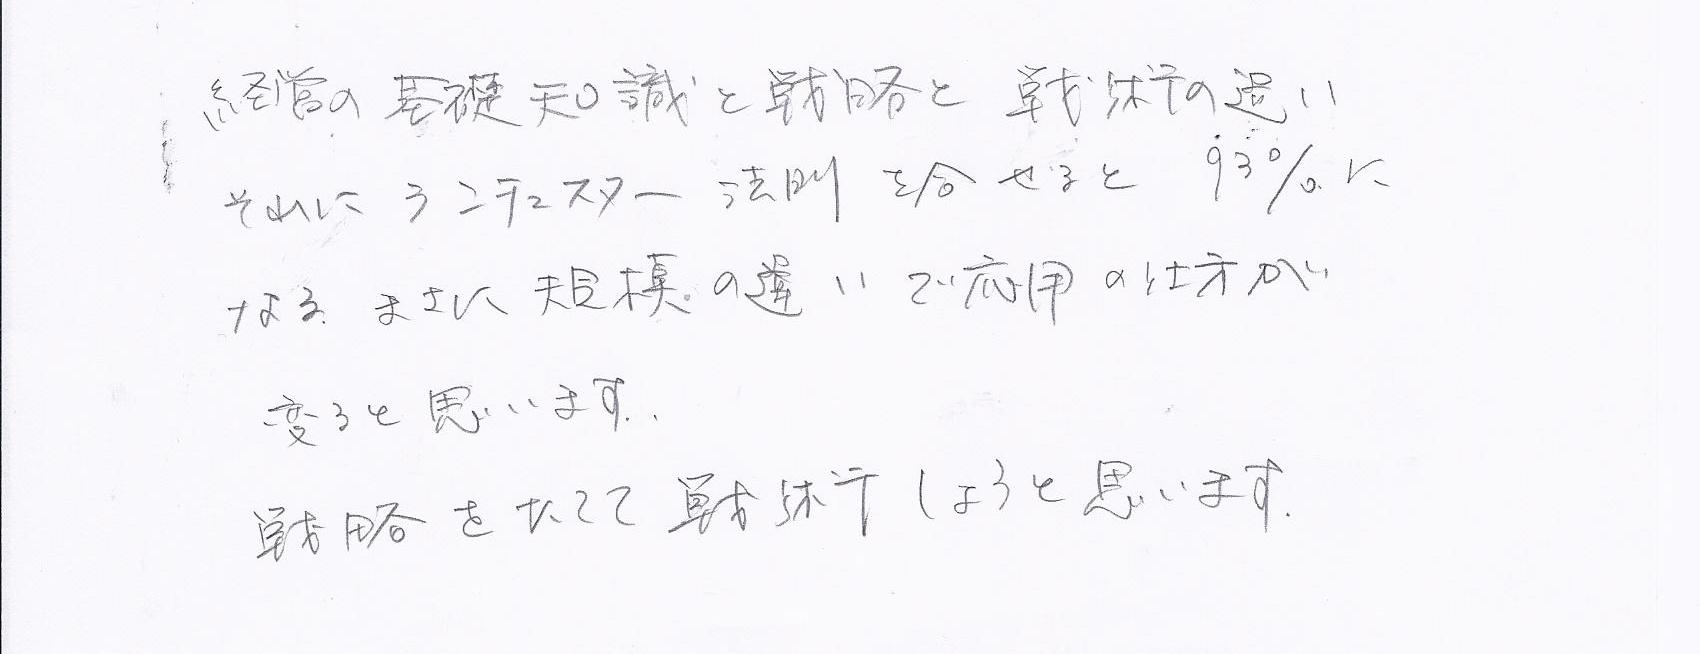 経営の基礎知識と戦略と戦術の違い
それにランチェスター法則を合せると93%に
なる。まさに規模の違いで応用の仕方が
変ると思います。
戦略をたてて戦術しようと思います。